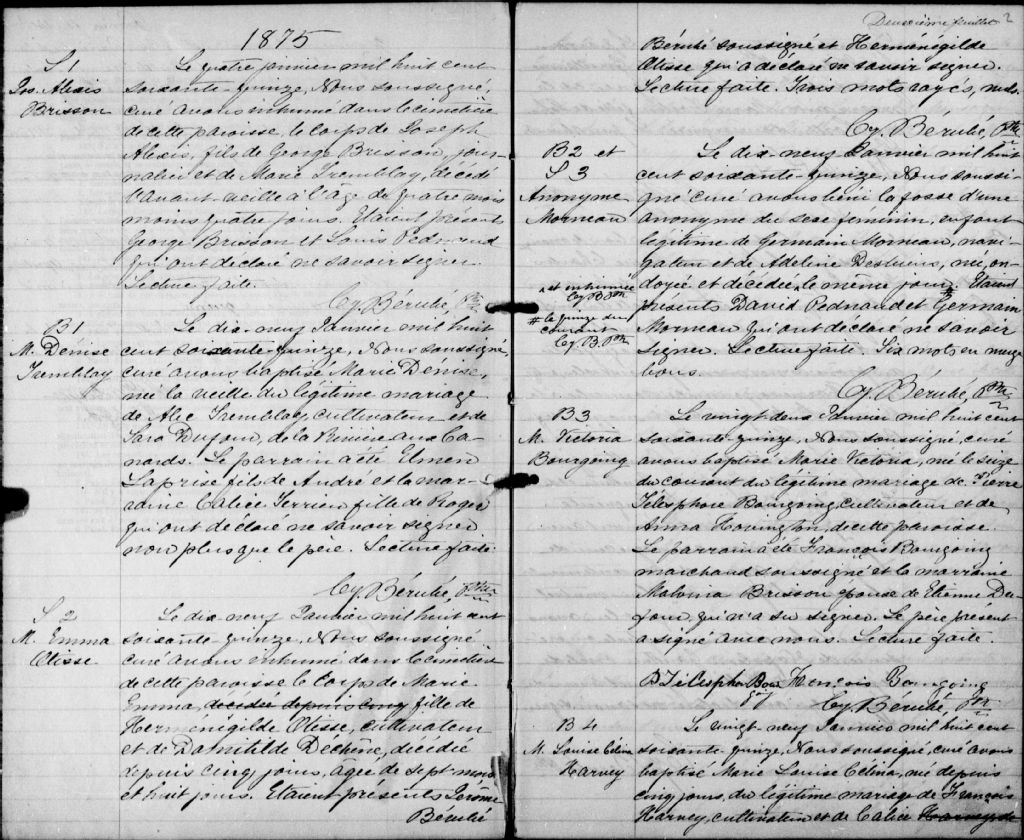 1875
S 1
Jos. Alexis
Brisson
Le quatre janvier mil huit cent
soixante-quinze, Nous soussigné,
curé avons inhumé dans le cimetière
de cette paroisse, le corps de Joseph
Alexis, fils de George Brisson, jour-
nalier et de Marie Tremblay, décédé
l'avant-veille à l'âge de quatre mois
moins quatre jours. Etaient présent
George Brisson et Louis Pednaud
qui ont déclaré ne savoir signer.
Lecture faite.
Cy. Bérubé, Ptre
B 1
M. Denise
Tremblay
Le dix-neuf Janvier mil huit
cent soixante-quinze, Nous soussigné,
curé avons baptisé Marie Denise,
née la veille du légitime mariage
de Alec Tremblay, cultivateur et de
Sara Dufour, de la Rivière aux Ca-
nards. Le parrain a été Elmen
Laprise fils de André et la mar-
raine Calice Terrien fille de Roger
qui ont déclaré ne savoir signer
non plus que le père. Lecture faite.
Cy. Bérubé, Ptre
S 2
M. Emma
Otisse
Le dix-neuf Janvier mil huit cent
soixante-quinze, Nous soussigné
curé avons inhumé dans le cimetière
de cette paroisse le Corps de Marie
Emma, décédée depuis cinq fille de
Herménégilde Otisse, cultivateur
et de Damitilde Dechêne, décédée
depuis cinq jours, âgée de sept mois
et huit jours. Etaient présents Jérôme
Bérubé
Deuxième feuillet 2
Bérubé soussigné et Herménégilde
Otisse qui a déclaré ne savoir signer.
Lecture faite. Trois mots rayés, nuls.
Cy. Bérubé, Ptre
B2 et
S 3
Anonyme
Morneau
Le dix-neuf Janvier mil huit
cent soixante-quinze, Nous soussi-
gné curé avons béni la fosse d'une
anonyme du sexe feminin, enfant
légitime de Germain Morneau, navi-
gateur et de Adeline Desbiens, née, on-
doyée et décédée, le même jour. # Etaient
présents David Pednaud et Germain
Morneau qui ont déclaré ne savoir
signer. Lecture faite. Six mots en marge
bons.
^ et inhumée
Cy. B. Ptre
# le quinze du
courant
Cy. B. Ptre
Cy. Bérubé, Ptre
B 3
M. Victoria
Bourgoing
Le vingt deux Janvier mil huit cent
soixante-quinze, Nous soussigné, curé
avons baptisé Marie Victoria, née le seize
du courant du légitime mariage de Pierre
Télesphore Bourgoing, cultivateur et de
Anna Hovington, de cette paroisse.
Le parrain a été François Bourgoing
marchand soussigné et la marraine
Malvina Brisson épouse de Etienne Du-
four, qui n'a su signer. Le père présent
a signé avec nous. Lecture faite.
François Bourgoing
Cy. Bérubé, Ptr.
B 4
M. Louise Célina
Harvey
Le vingt-neuf Janvier mil huit cent
soixante-quinze, Nous soussigné, curé avons
baptisé Marie Louise Célina, née depuis
cinq jours, du légitime mariage de François
Harvey, cultivateur et de Calice Harvey de